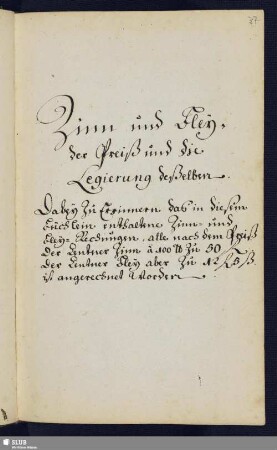 87
Zinn und Bley,
der Preiß und die
Legierung deßelben.
Dabey zu Erinnern das in diesem
büchlein enthaltene Zinn- und
Bley- Rechnungen, alle nach dem Preiß
der Centner Zinn à 100 ℔ zu 50
der Centner Bley aber zu 12
ist angerechnet worden.
SLUB
Wir führen Wissen.